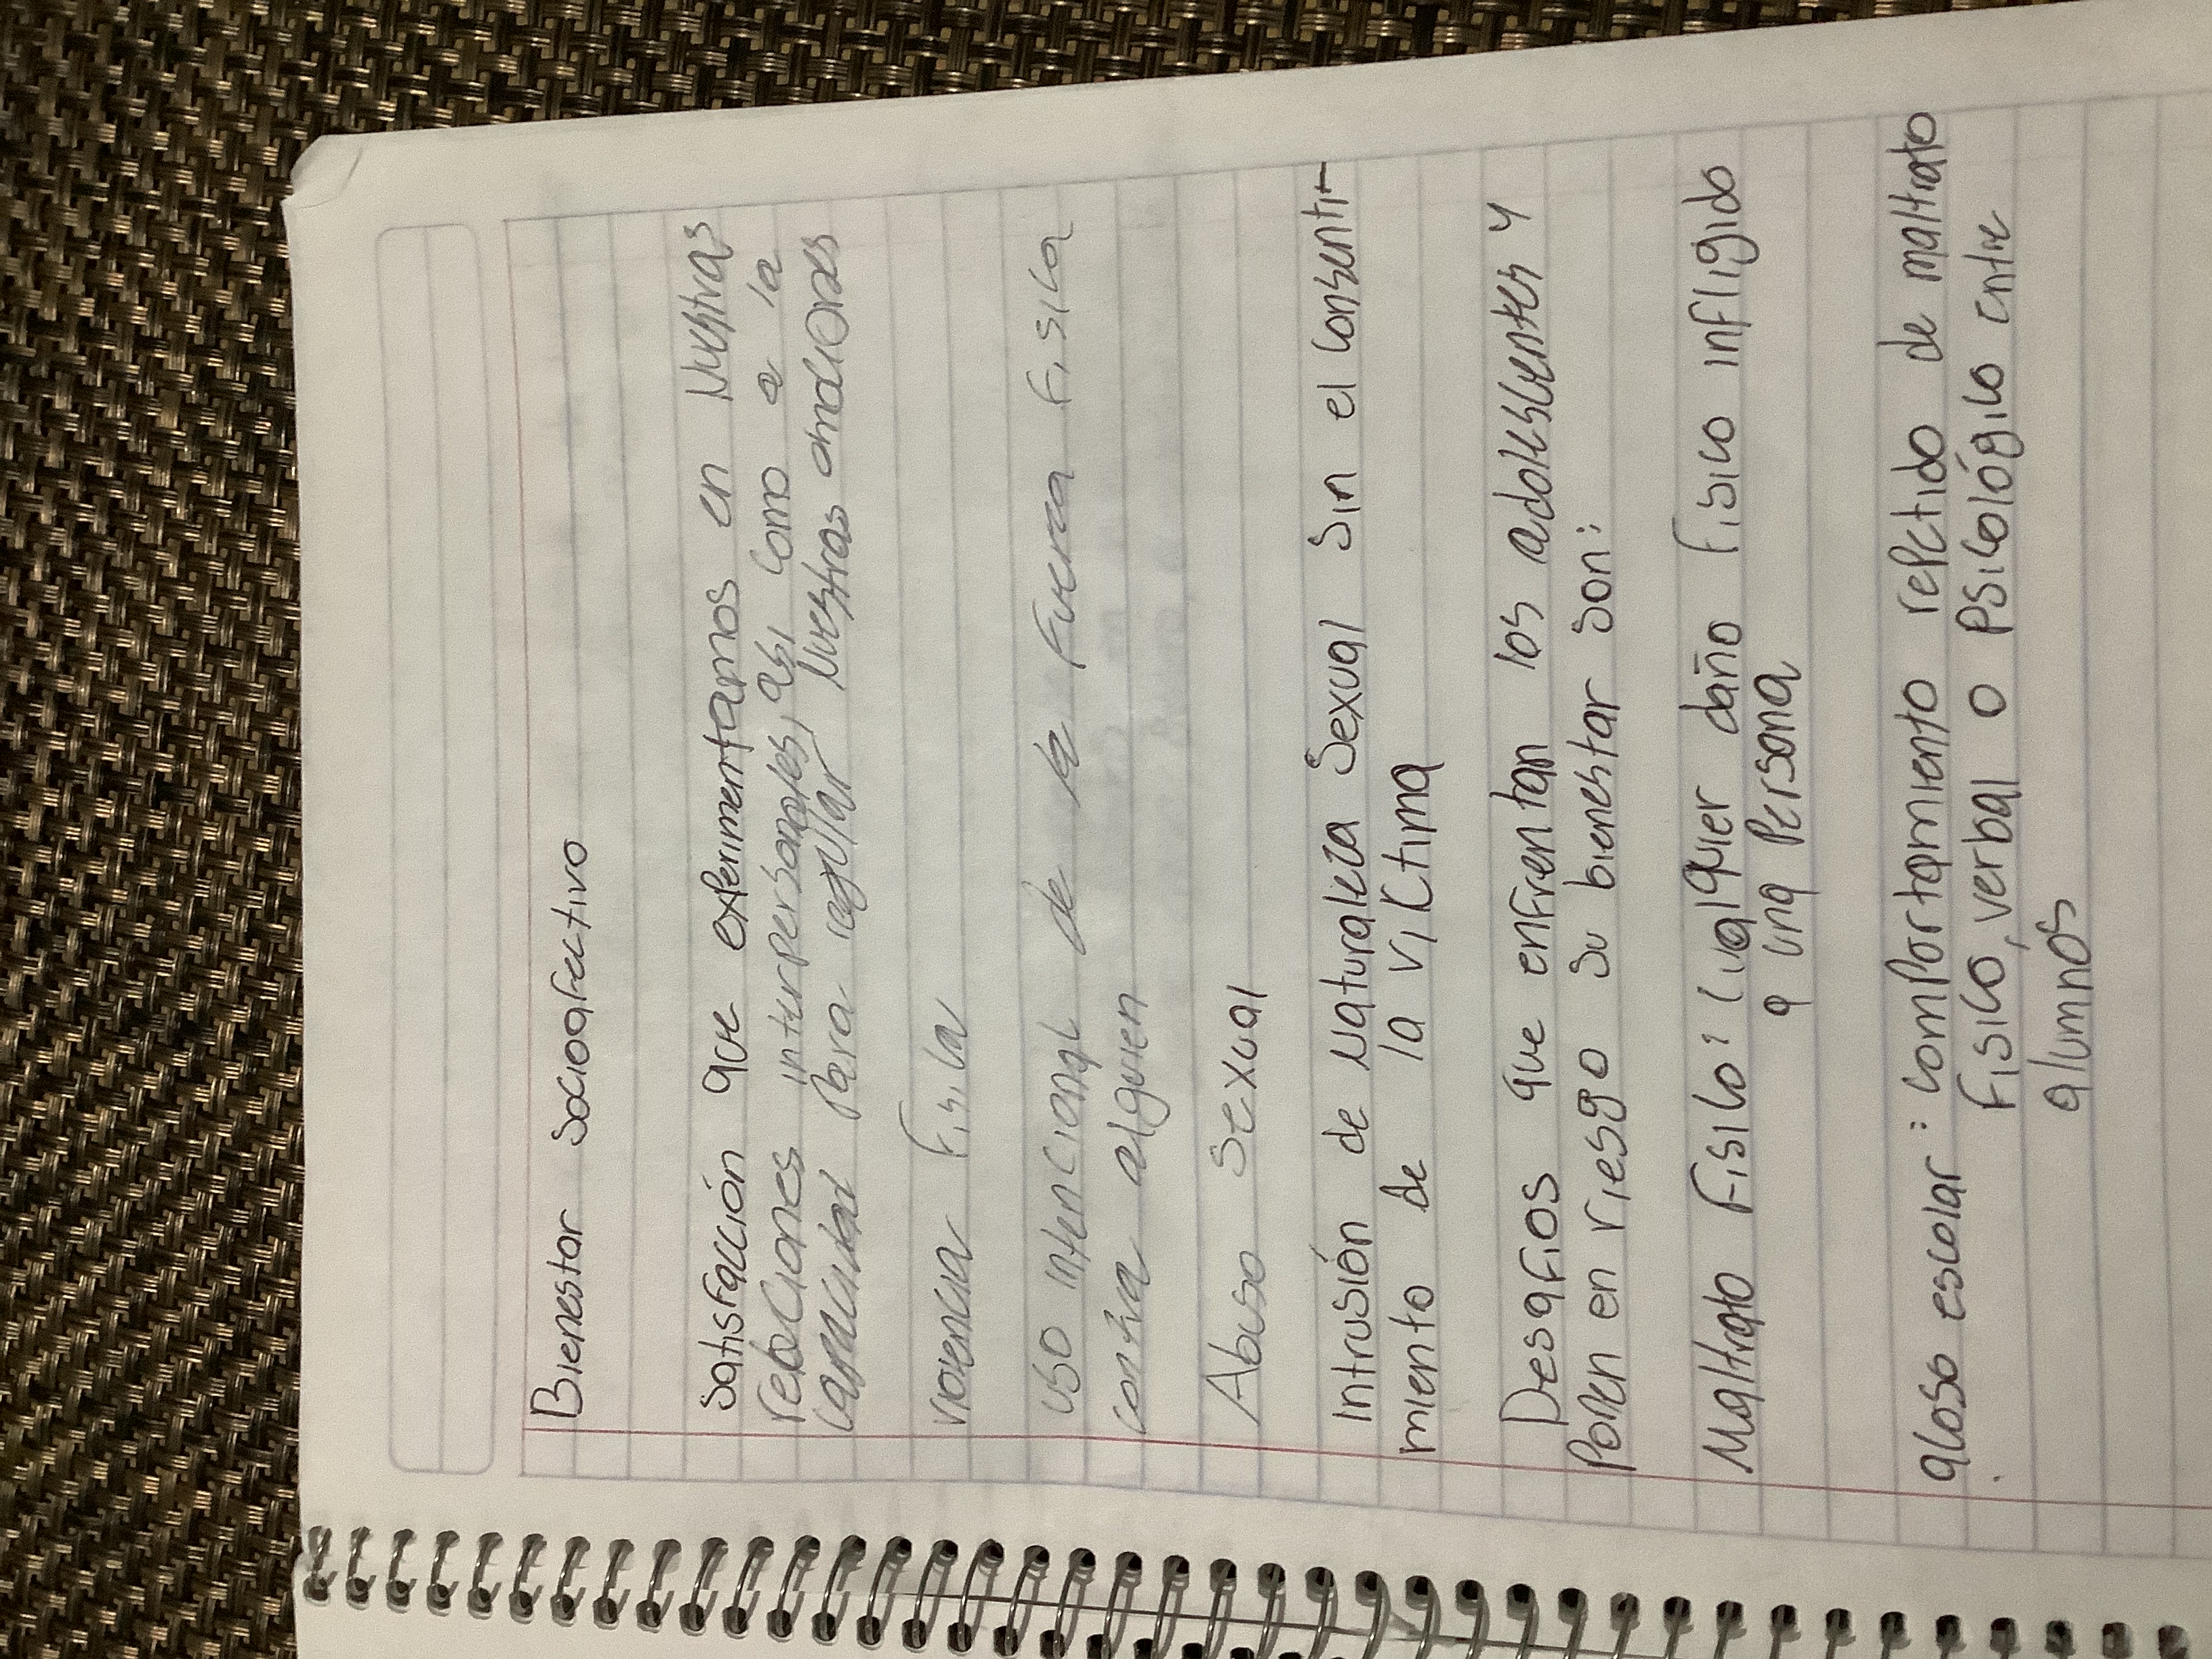 Bienestar socioafectivo
satisfacción que experimentamos en Nuestras
relaciones interpersonales, asi como a la
capacidad para regular Nuestras emociones
violencia Fisica
uso intencional de la fuerza Fisica
contra alguien
Abuso sexual
Intrusión de Naturaleza sexual sin el consenti-
miento de la victima
Desafios que enfrentan los adolescentes y
ponen en riesgo su bienestar son:
Maltrato Fisico: cualquier daño Fisico infligido
a una persona
acoso escolar: comportamiento repetido de maltrato
Fisico, verbal o psicológico entre
alumnos